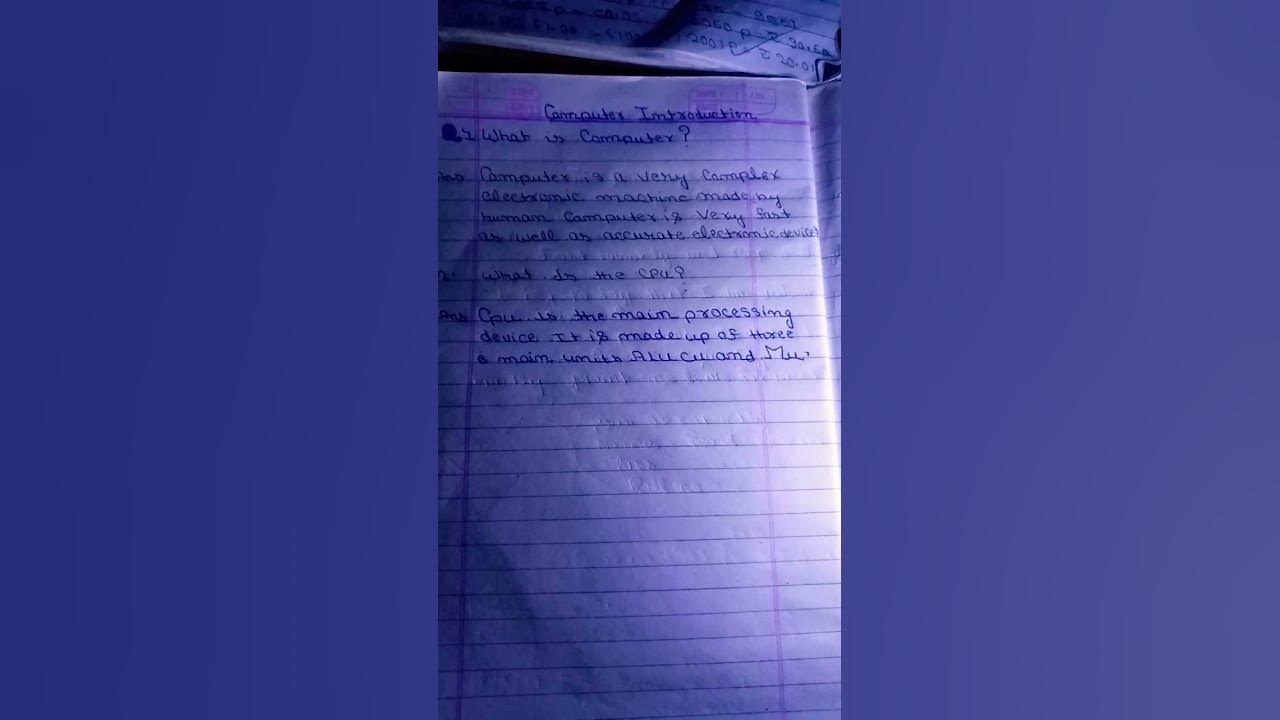 2060 P = 30.60
2001 P = 20.01
Computer Introduction
Q1 What is Computer?
Ans Computer is a very Complex
electronic machine made by
human Computer is very fast
as well as accurate electronic device
2. What Is the CPU?
Ans Cpu is the main processing
device It is made up of three
main units ALU CU and Mu.